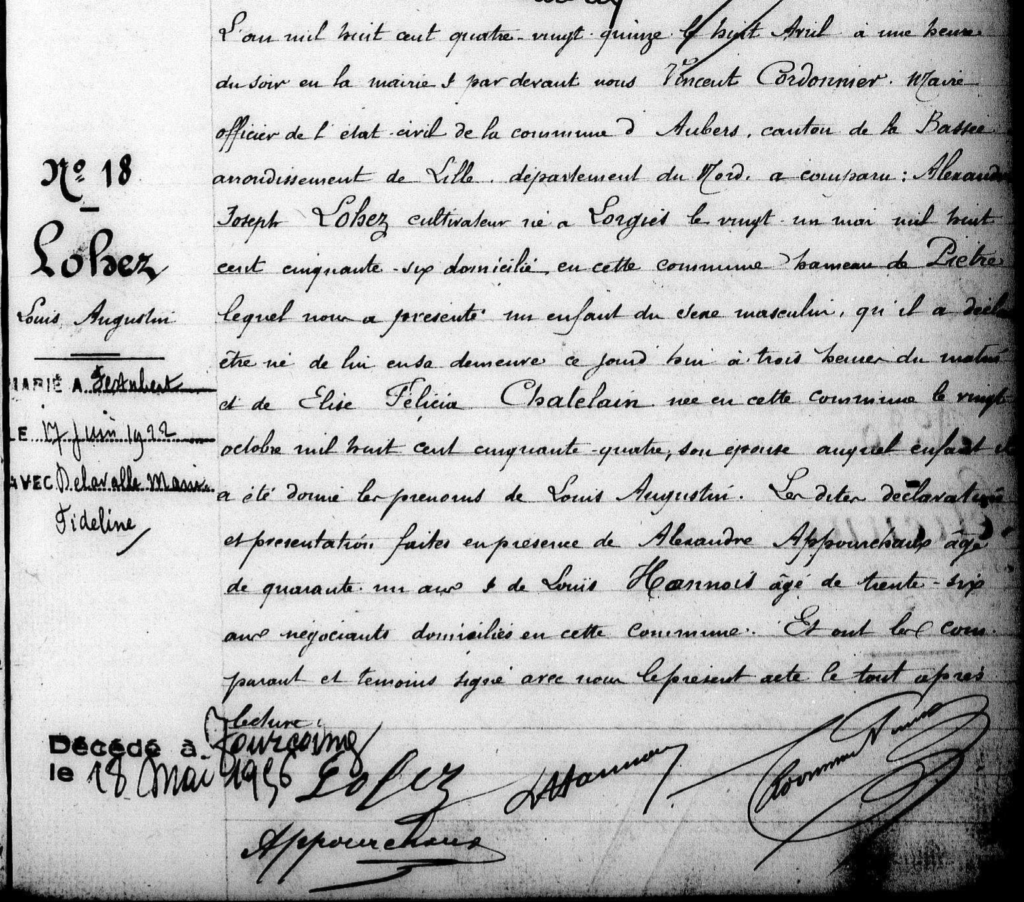 L'an mil huit cent quatre-vingt-quinze le huit Avril à une heure
du soir en la mairie & par devant nous Vincent Cordonnier. Maire
officier de l'état civil de la commune d'Aubers, canton de la Bassée
arrondissement de Lille, département du Nord, a comparu : Alexandre
Joseph Lohez cultivateur né à Lorgies le vingt un mai mil huit
cent cinquante-six domicilié en cette commune hameau de Piètre
lequel nous a présenté un enfant du sexe masculin, qu'il a décla
être né de lui en sa demeure ce jourd'hui à trois heures du matin
et de Elise Félicia Chatelain née en cette commune le vingt
octobre mil huit cent cinquante-quatre, son épouse auquel enfant il
a été donné les prénoms de Louis Augustin. Les dites déclaration
et présentation faites en présence de Alexandre Appourchaux âgé
de quarante-un ans & de Louis Hannois âgé de trente-six
ans négociants domiciliés en cette commune. Et ont les com-
parant et témoins signé avec nous le présent acte le tout après
lecture.
No 18
Lohez
Louis Augustin
MARIÉ A Festubert
LE 17 Juin 1922
AVEC Delavalle Marie
Fideline
Décédé à Tourcoing
le 18 Mai 1956
Lohez
Appourchaux